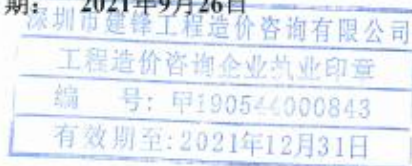 期： 2021年9月26日
深圳市建锋工程造价咨询有限公司
工程造价咨询企业执业印章
编 号：甲190544000843
有效期至：2021年12月31日